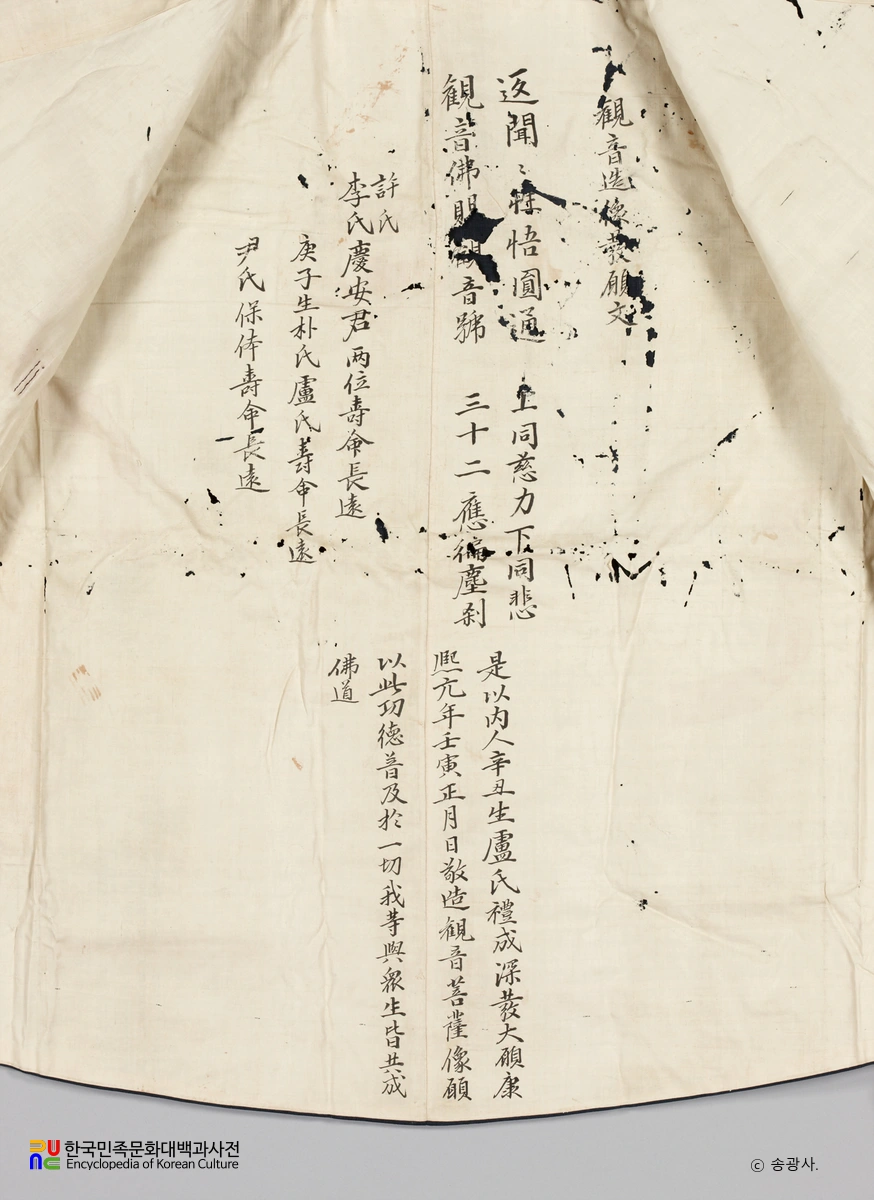 觀音造像發願文
返聞〻性悟圓通 上同慈力下同悲
觀音佛賜觀音號 三十二應徧塵刹
是以內人辛丑生盧氏禮成深發大願康
熙元年壬寅正月日敬造觀音菩薩像願
以此功德普及於一切我等與衆生皆共成
佛道
許氏
李氏慶安君兩位壽命長遠
庚子生朴氏盧氏壽命長遠
尹氏保体壽命長遠
한국민족문화대백과사전
Encyclopedia of Korean Culture
ⓒ 송광사.